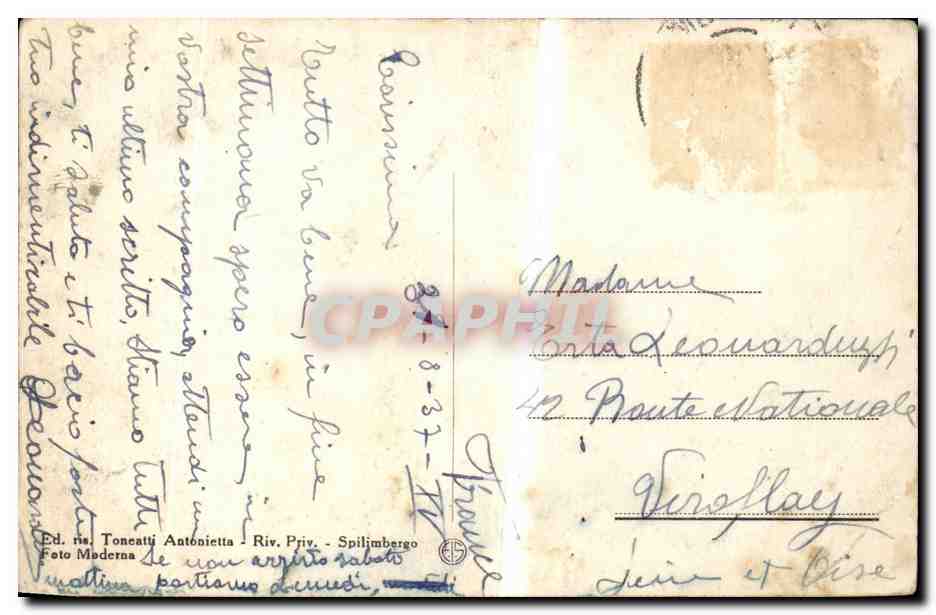 Carissima
Tutto va bene, in fine
settimana spero essere, in
vostra compagnia, Attendi un
mio ultimo scritto, Stiamo tutti
bene, ti saluto e ti bacio forte
tuo indimenticabile Leonardo
27-8-37-XV
Se non arrivo sabato
mattina, partiamo Lunedì,
Madame
Erta Leonarduzzi
42 Route Nationale
Viroflay
Seine et Oise
France
Ed. ris. Toneatti Antonietta - Riv. Priv. - Spilimbergo
Foto Moderna
CPAPHIL